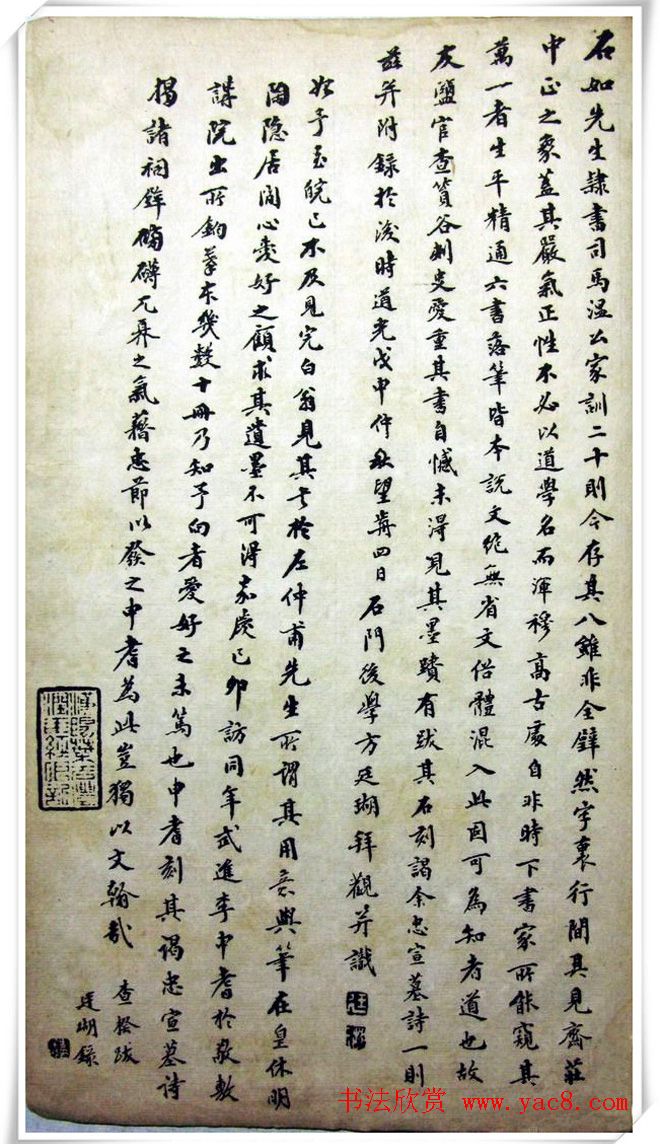 石如先生隸書司馬温公家訓二十則今存其八雖非全璧然字裏行間具見齋莊
中正之象蓋其嚴氣正性不必以道學名而渾穆高古處自非時下書家所能窺其
萬一者生平精通六書落筆皆本說文絶無省文俗體混入此固可為知者道也故
友鹽官查篔谷刺史愛重其書自憾未淂見其墨蹟有跋其石刻謁余忠宣墓詩一則
茲并附錄於後時道光戊申仲秋望歬四日石門後學方廷瑚拜觀并識
始予至皖已不及見完白翁見其書於左仲甫先生所謂其用意與筆在皇休明
陶隐居間心愛好之顧求其遺墨不可得嘉慶己卯訪同年武進李申耆於敬敷
講院出所鈎摹本幾數十冊乃知予向者愛好之未篤也申耆刻其謁忠宣墓詩
揭諸祠壁磅礴兀奡之氣藉忠節以發之申耆為此豈獨以文翰哉
查揆跋
廷瑚錄
书法欣赏 www.yac8.com